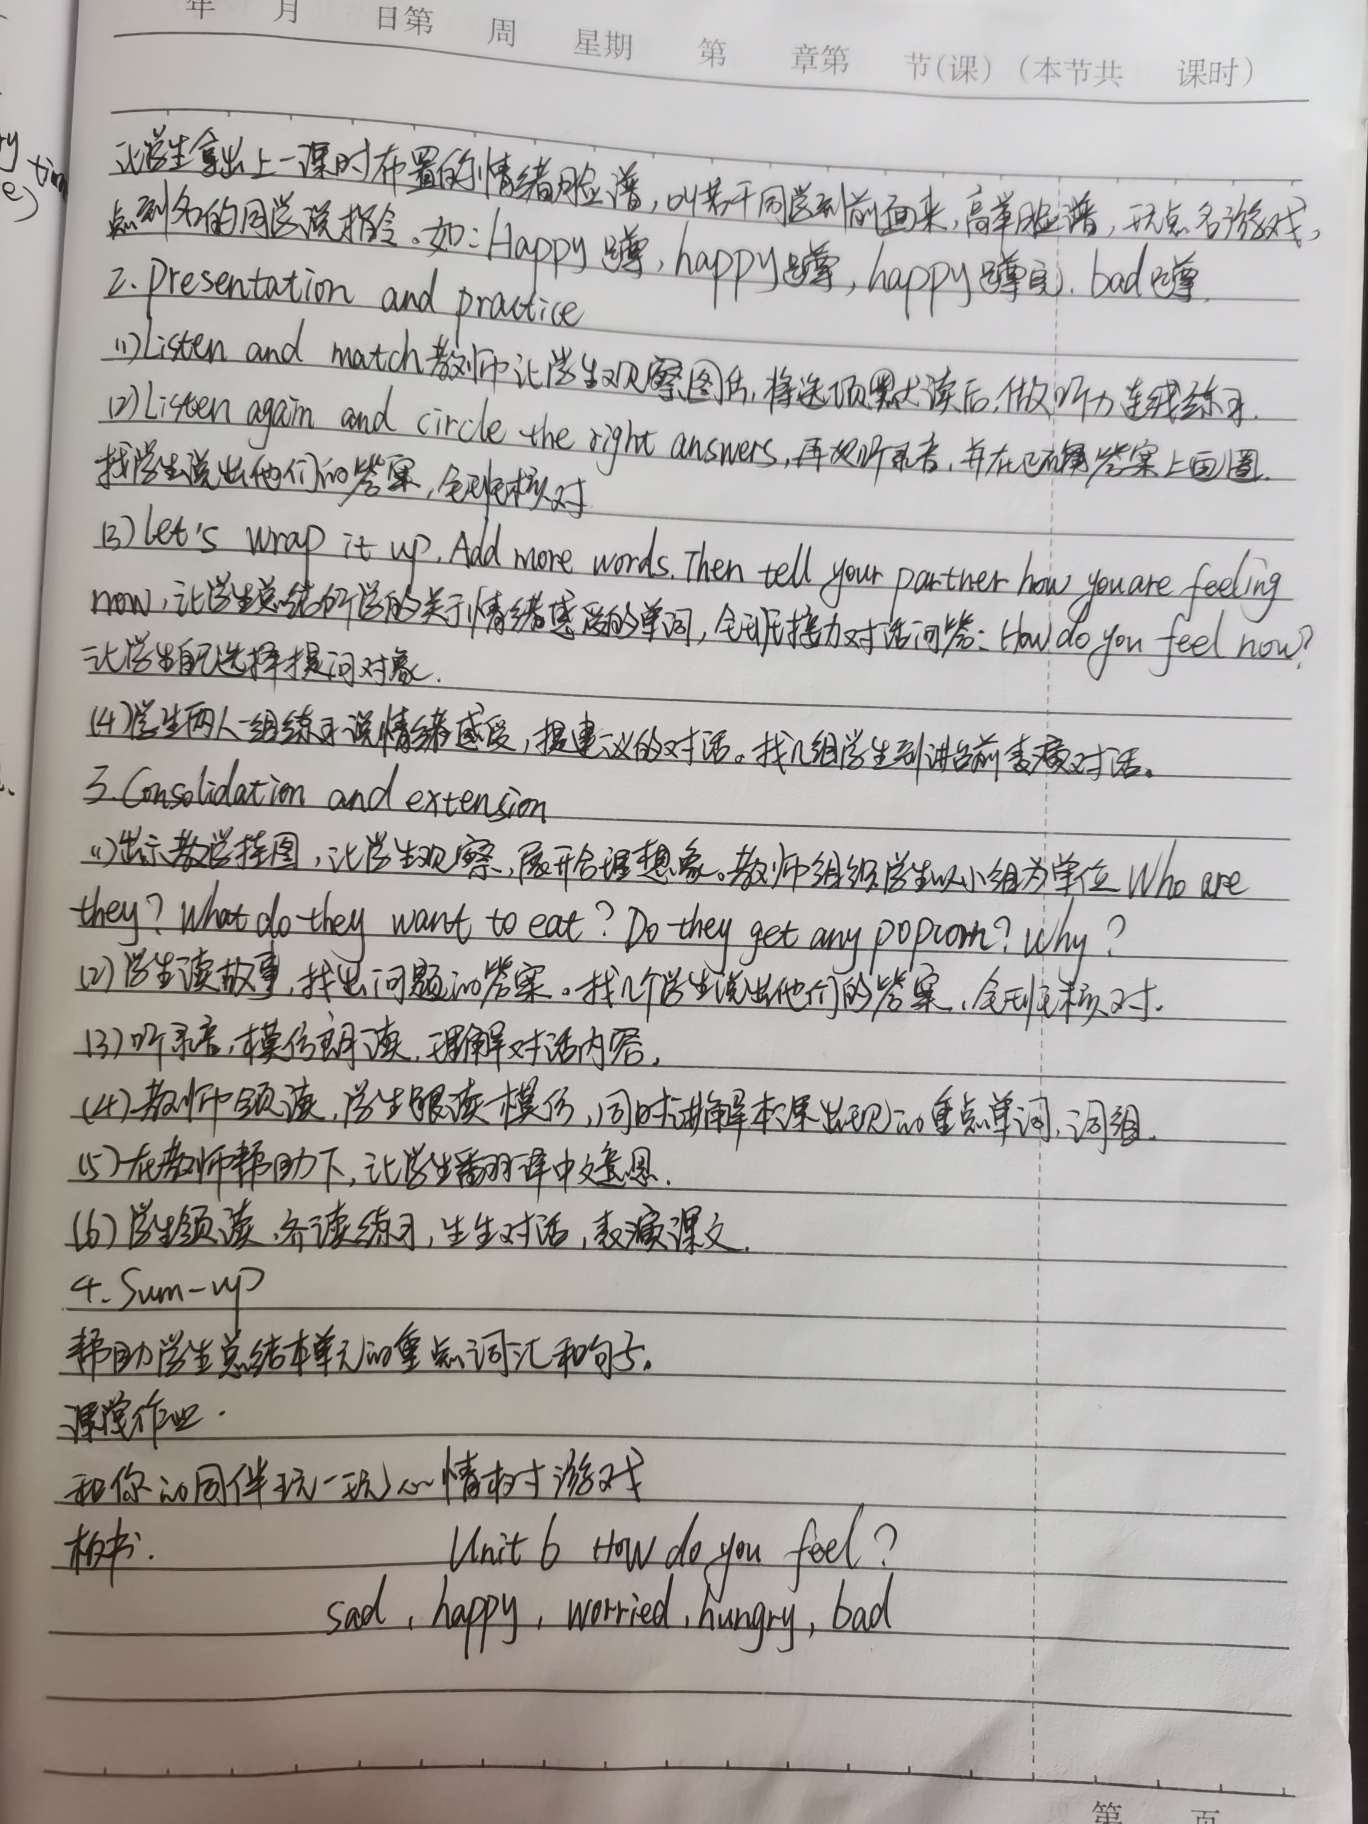 年 月 日第 周 星期 第 章第 节(课) (本节共 课时)
让学生拿出上一课时布置的情绪脸谱,叫若干同学到前面来,高举脸谱,玩点名游戏,
点到名的同学说指令。如:Happy蹲,happy蹲,happy蹲完,bad蹲.
2. Presentation and practice
(1)Listen and match教师让学生观察图片,将选项默读后,做听力连线练习.
(2)Listen again and circle the right answers,再次听录音,并在正确答案上画圈.
找学生说出他们的答案,全班核对
(3)Let's wrap it up. Add more words. Then tell your partner how you are feeling
now,让学生总结所学的关于情绪感受的单词,全班接力对话问答:How do you feel now?
让学生自己选择提问对象.
(4)学生两人一组练习说情绪感受,提建议的对话。找几组学生到讲台前表演对话。
3. Consolidation and extension
(1)出示教学挂图,让学生观察,展开合理想象。教师组织学生以小组为单位 Who are
they? What do they want to eat? Do they get any popcorn? Why?
(2)学生读故事,找出问题的答案。找几个学生说出他们的答案,全班核对.
(3)听录音,模仿朗读,理解对话内容,
(4)教师领读,学生跟读模仿,同时讲解本课出现的重点单词,词组.
(5)在教师帮助下,让学生翻译中文意思.
(6)学生领读,齐读练习,生生对话,表演课文.
4. Sum-up
帮助学生总结本单元的重点词汇和句子。
课堂作业.
和你的同伴玩一玩心情对对游戏
板书. Unit 6 How do you feel?
sad, happy, worried, hungry, bad
第 页